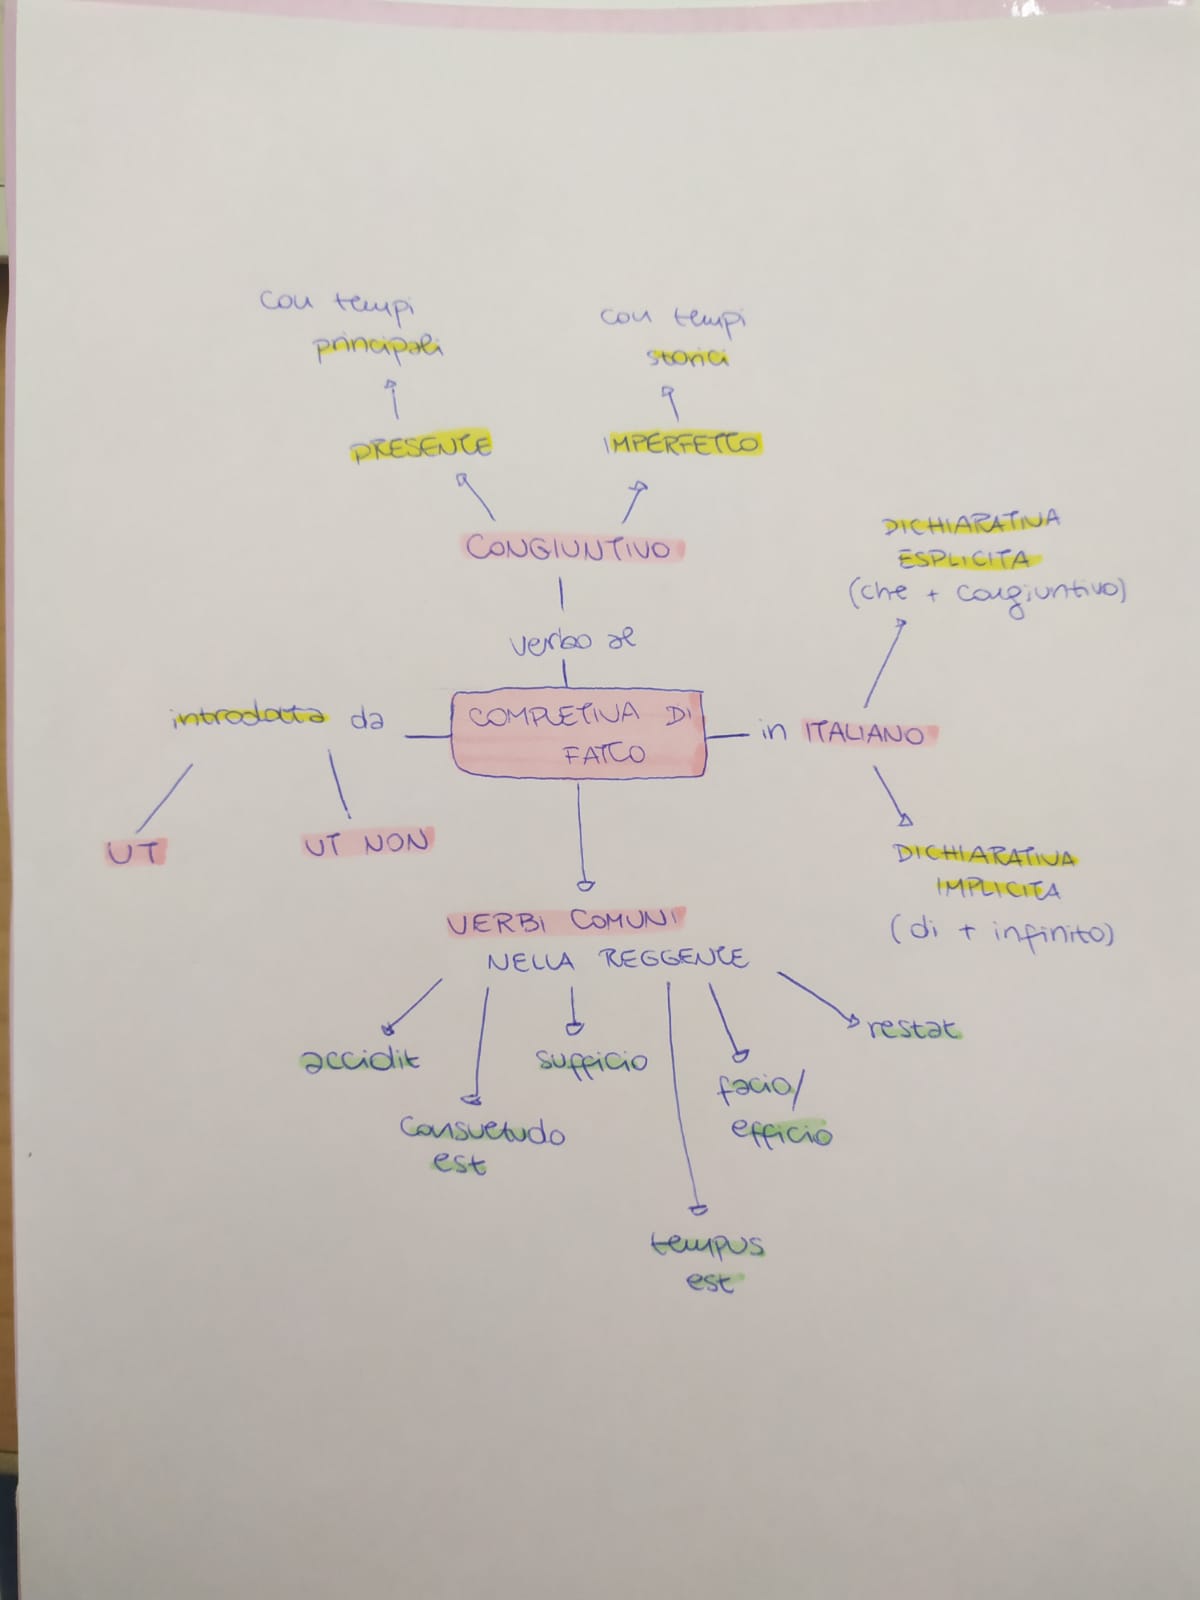 con tempi
principali
con tempi
storici
PRESENTE
IMPERFETTO
CONGIUNTIVO
verbo al
DICHIARATIVA
ESPLICITA
(che + congiuntivo)
introdotta da
COMPLETIVA DI
FATTO
in ITALIANO
UT
UT NON
DICHIARATIVA
IMPLICITA
(di + infinito)
VERBI COMUNI
NELLA REGGENTE
accidit
consuetudo
est
sufficio
tempus
est
facio/
efficio
restat